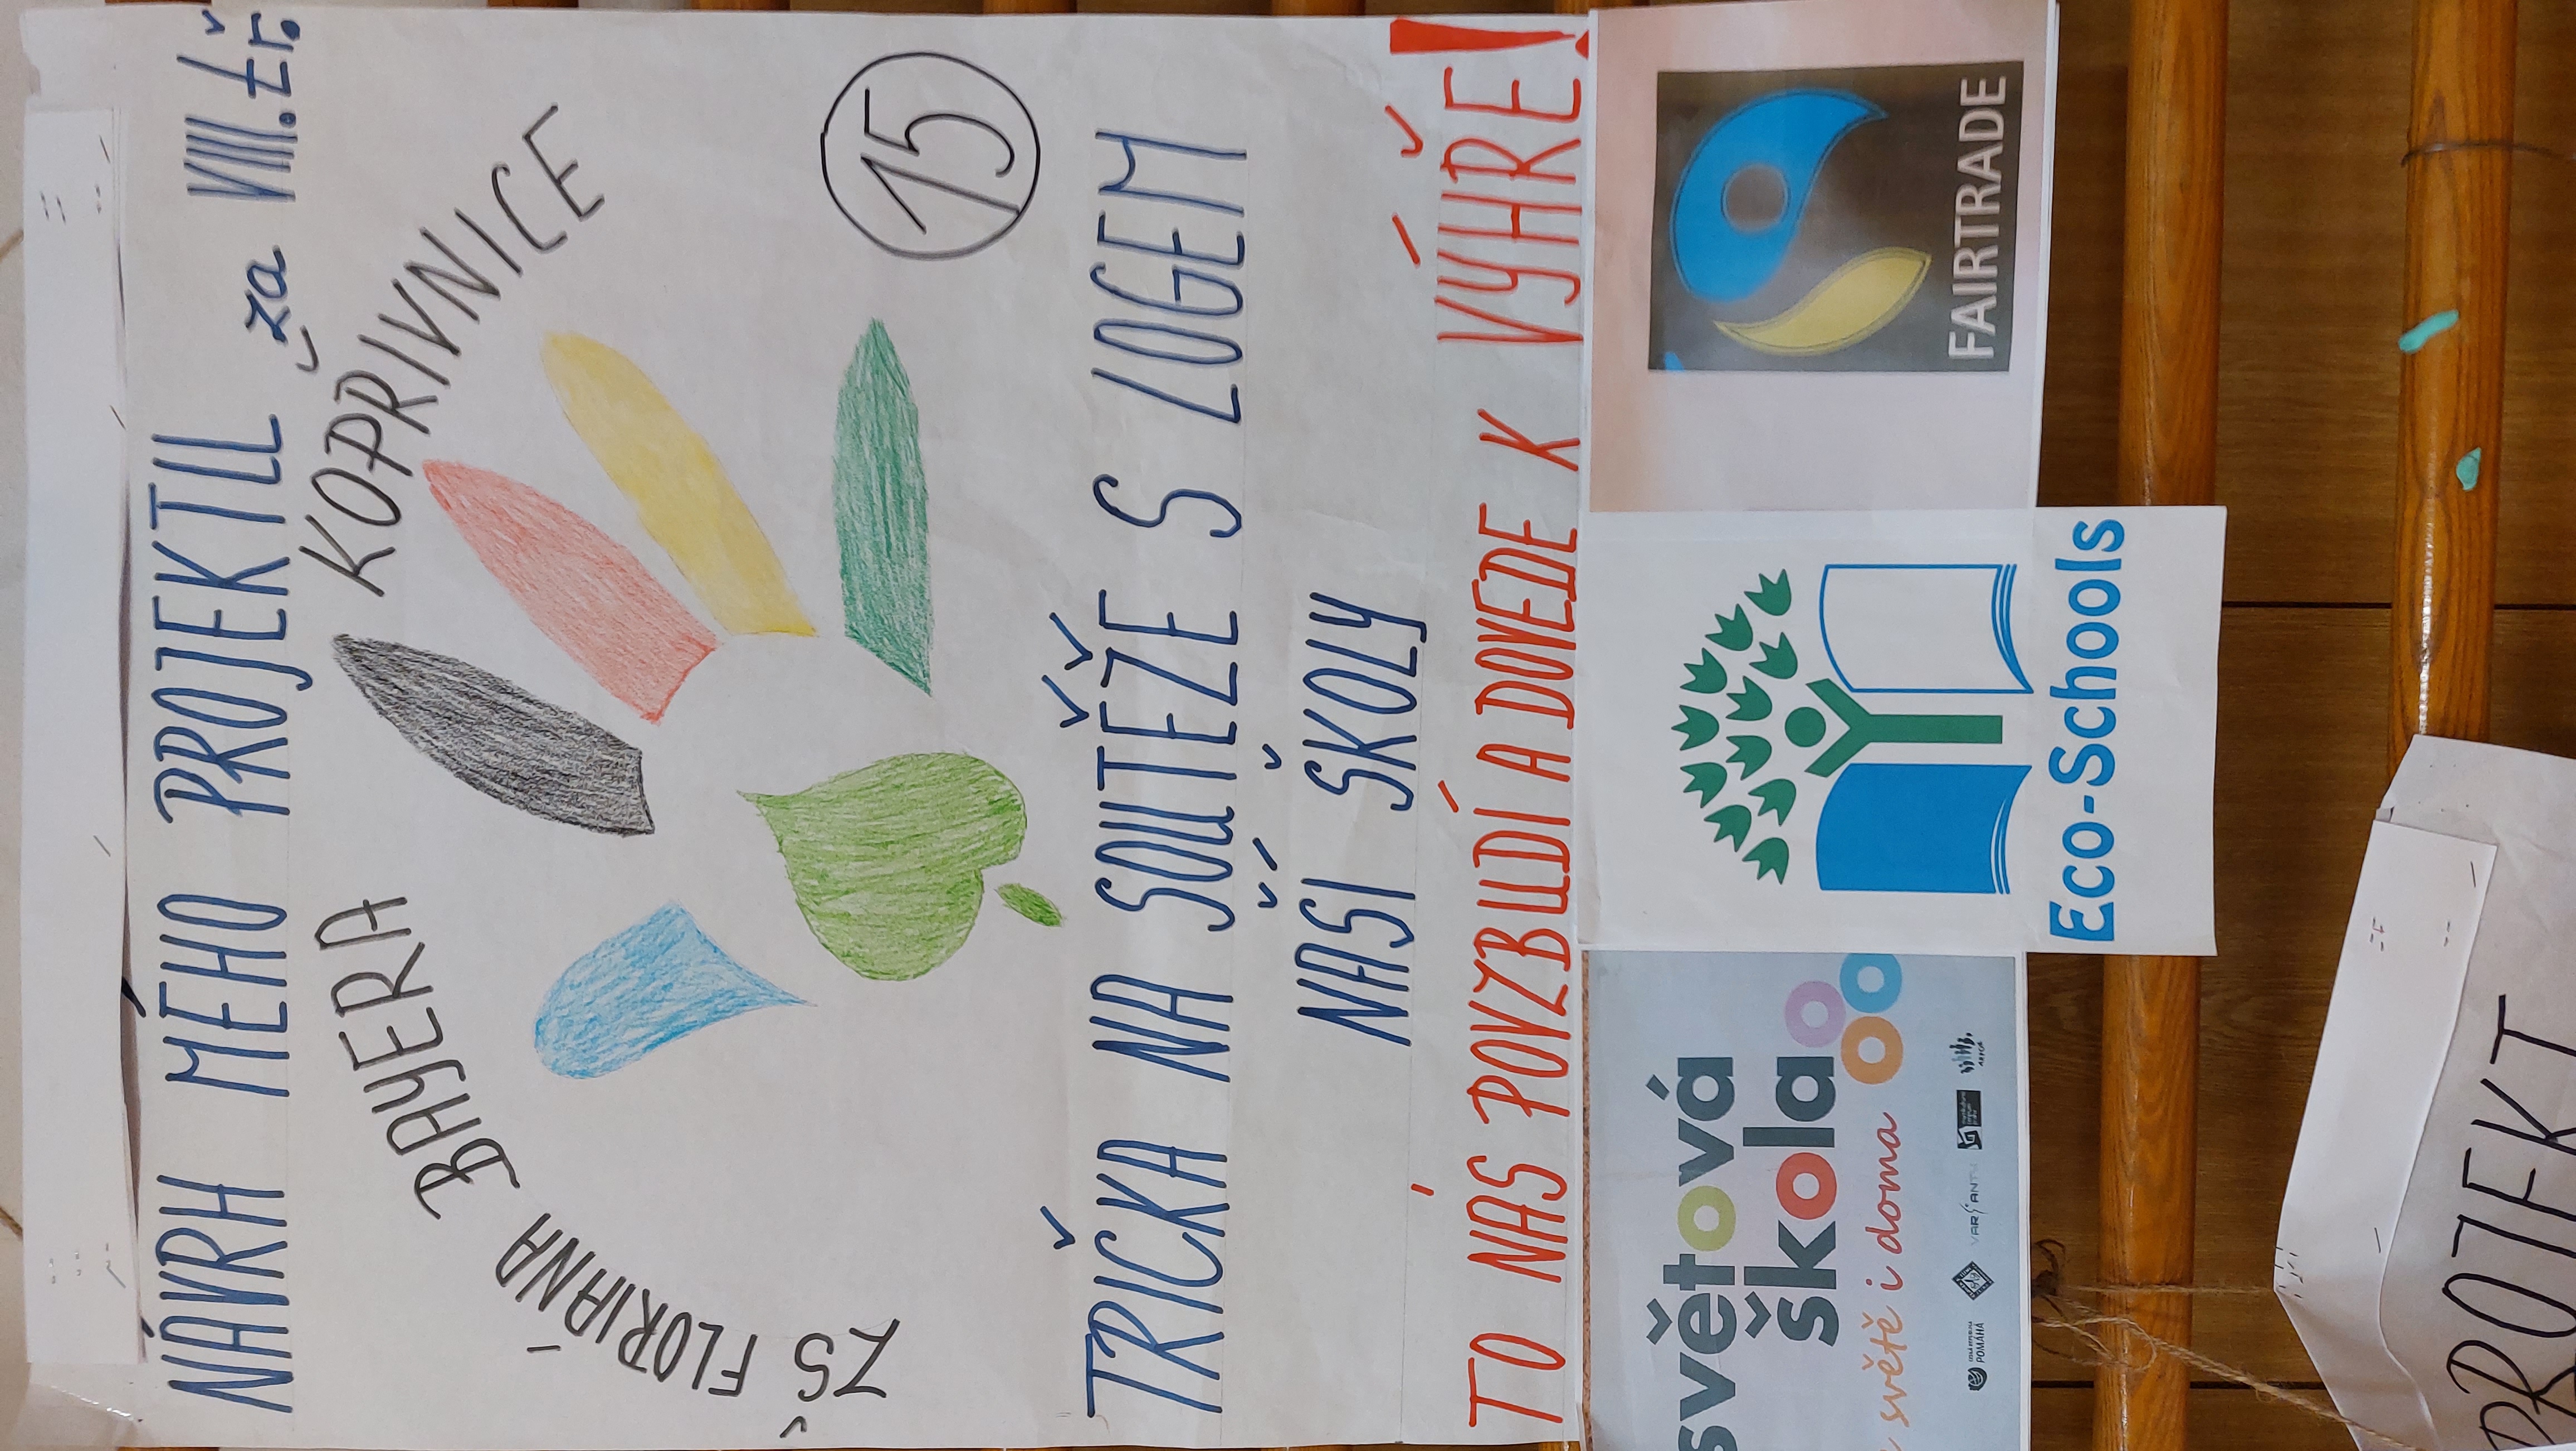 NÁVRH MÉHO PROJEKTU za VIII. tř.
ZŠ FLORIÁNA BAYERA KOPŘIVNICE
15
TRIČKA NA SOUTĚŽE S LOGEM
NAŠÍ ŠKOLY
TO NÁS POVZBUDÍ A DOVEDE K VÝHŘE!
světová
škola
světě i doma
POMÁHÁ
VARIANTY
Eco-Schools
FAIRTRADE
PROJEKT